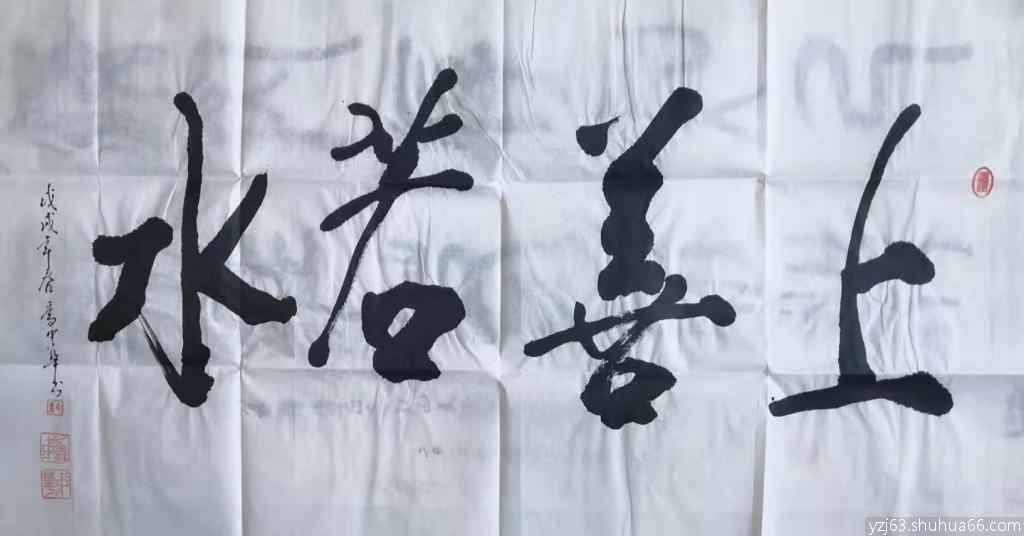 上善若水
戊戌年春高中华书
yzj63.shuhua66.com